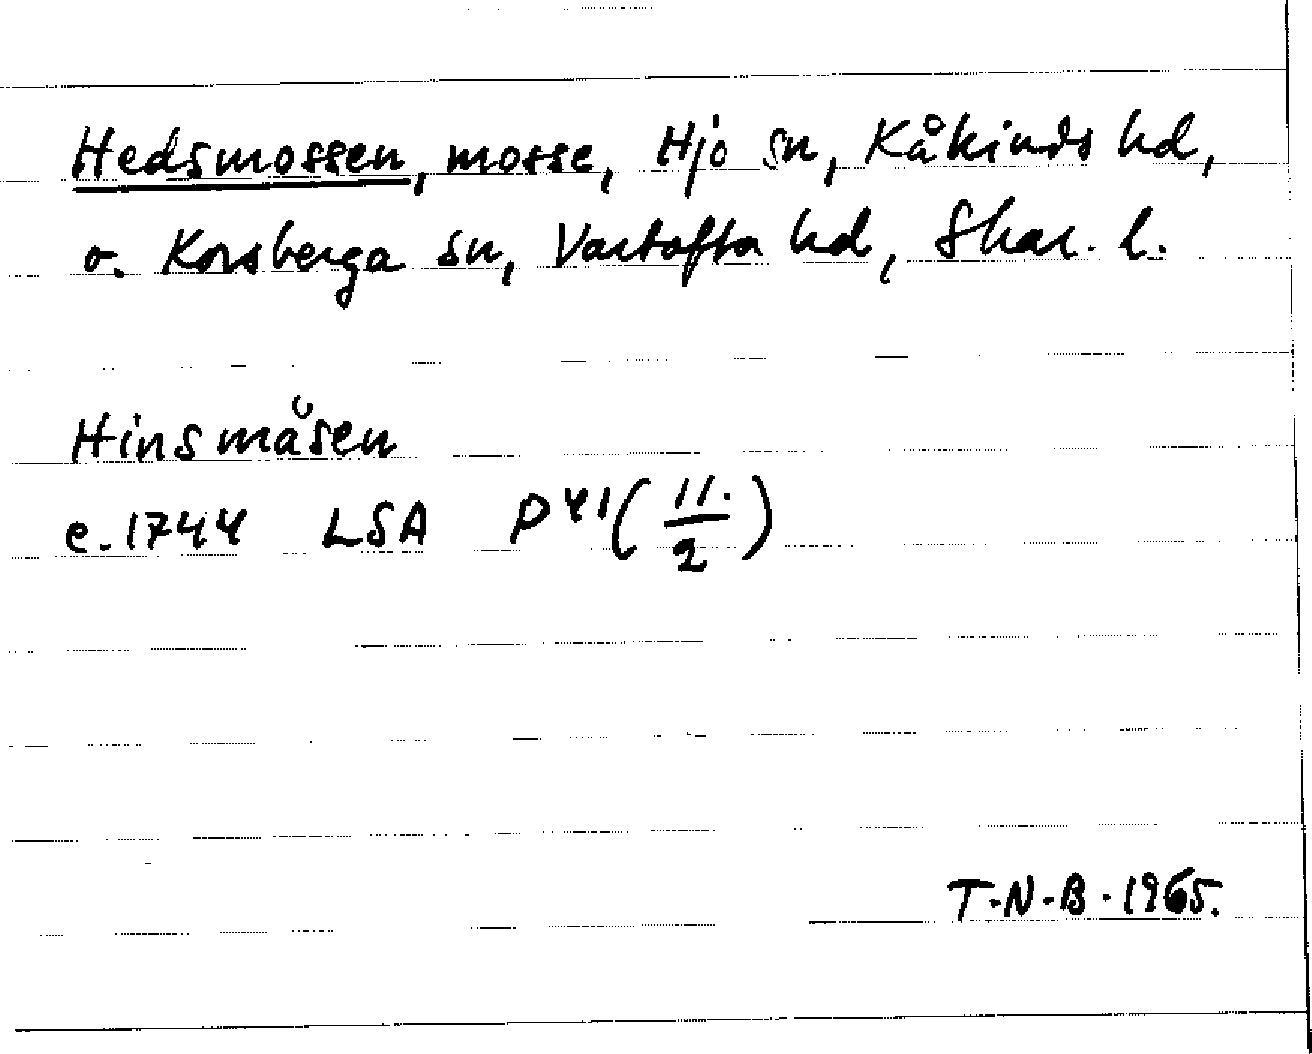 Hedsmossen, mosse, Hjo sn, Kåkinds hd,
o. Korsberga sn, Vartofta hd, Skar. l.
Hinsmåsen
e. 1744 LSA P41 (11./2)
T.N.B. 1965.